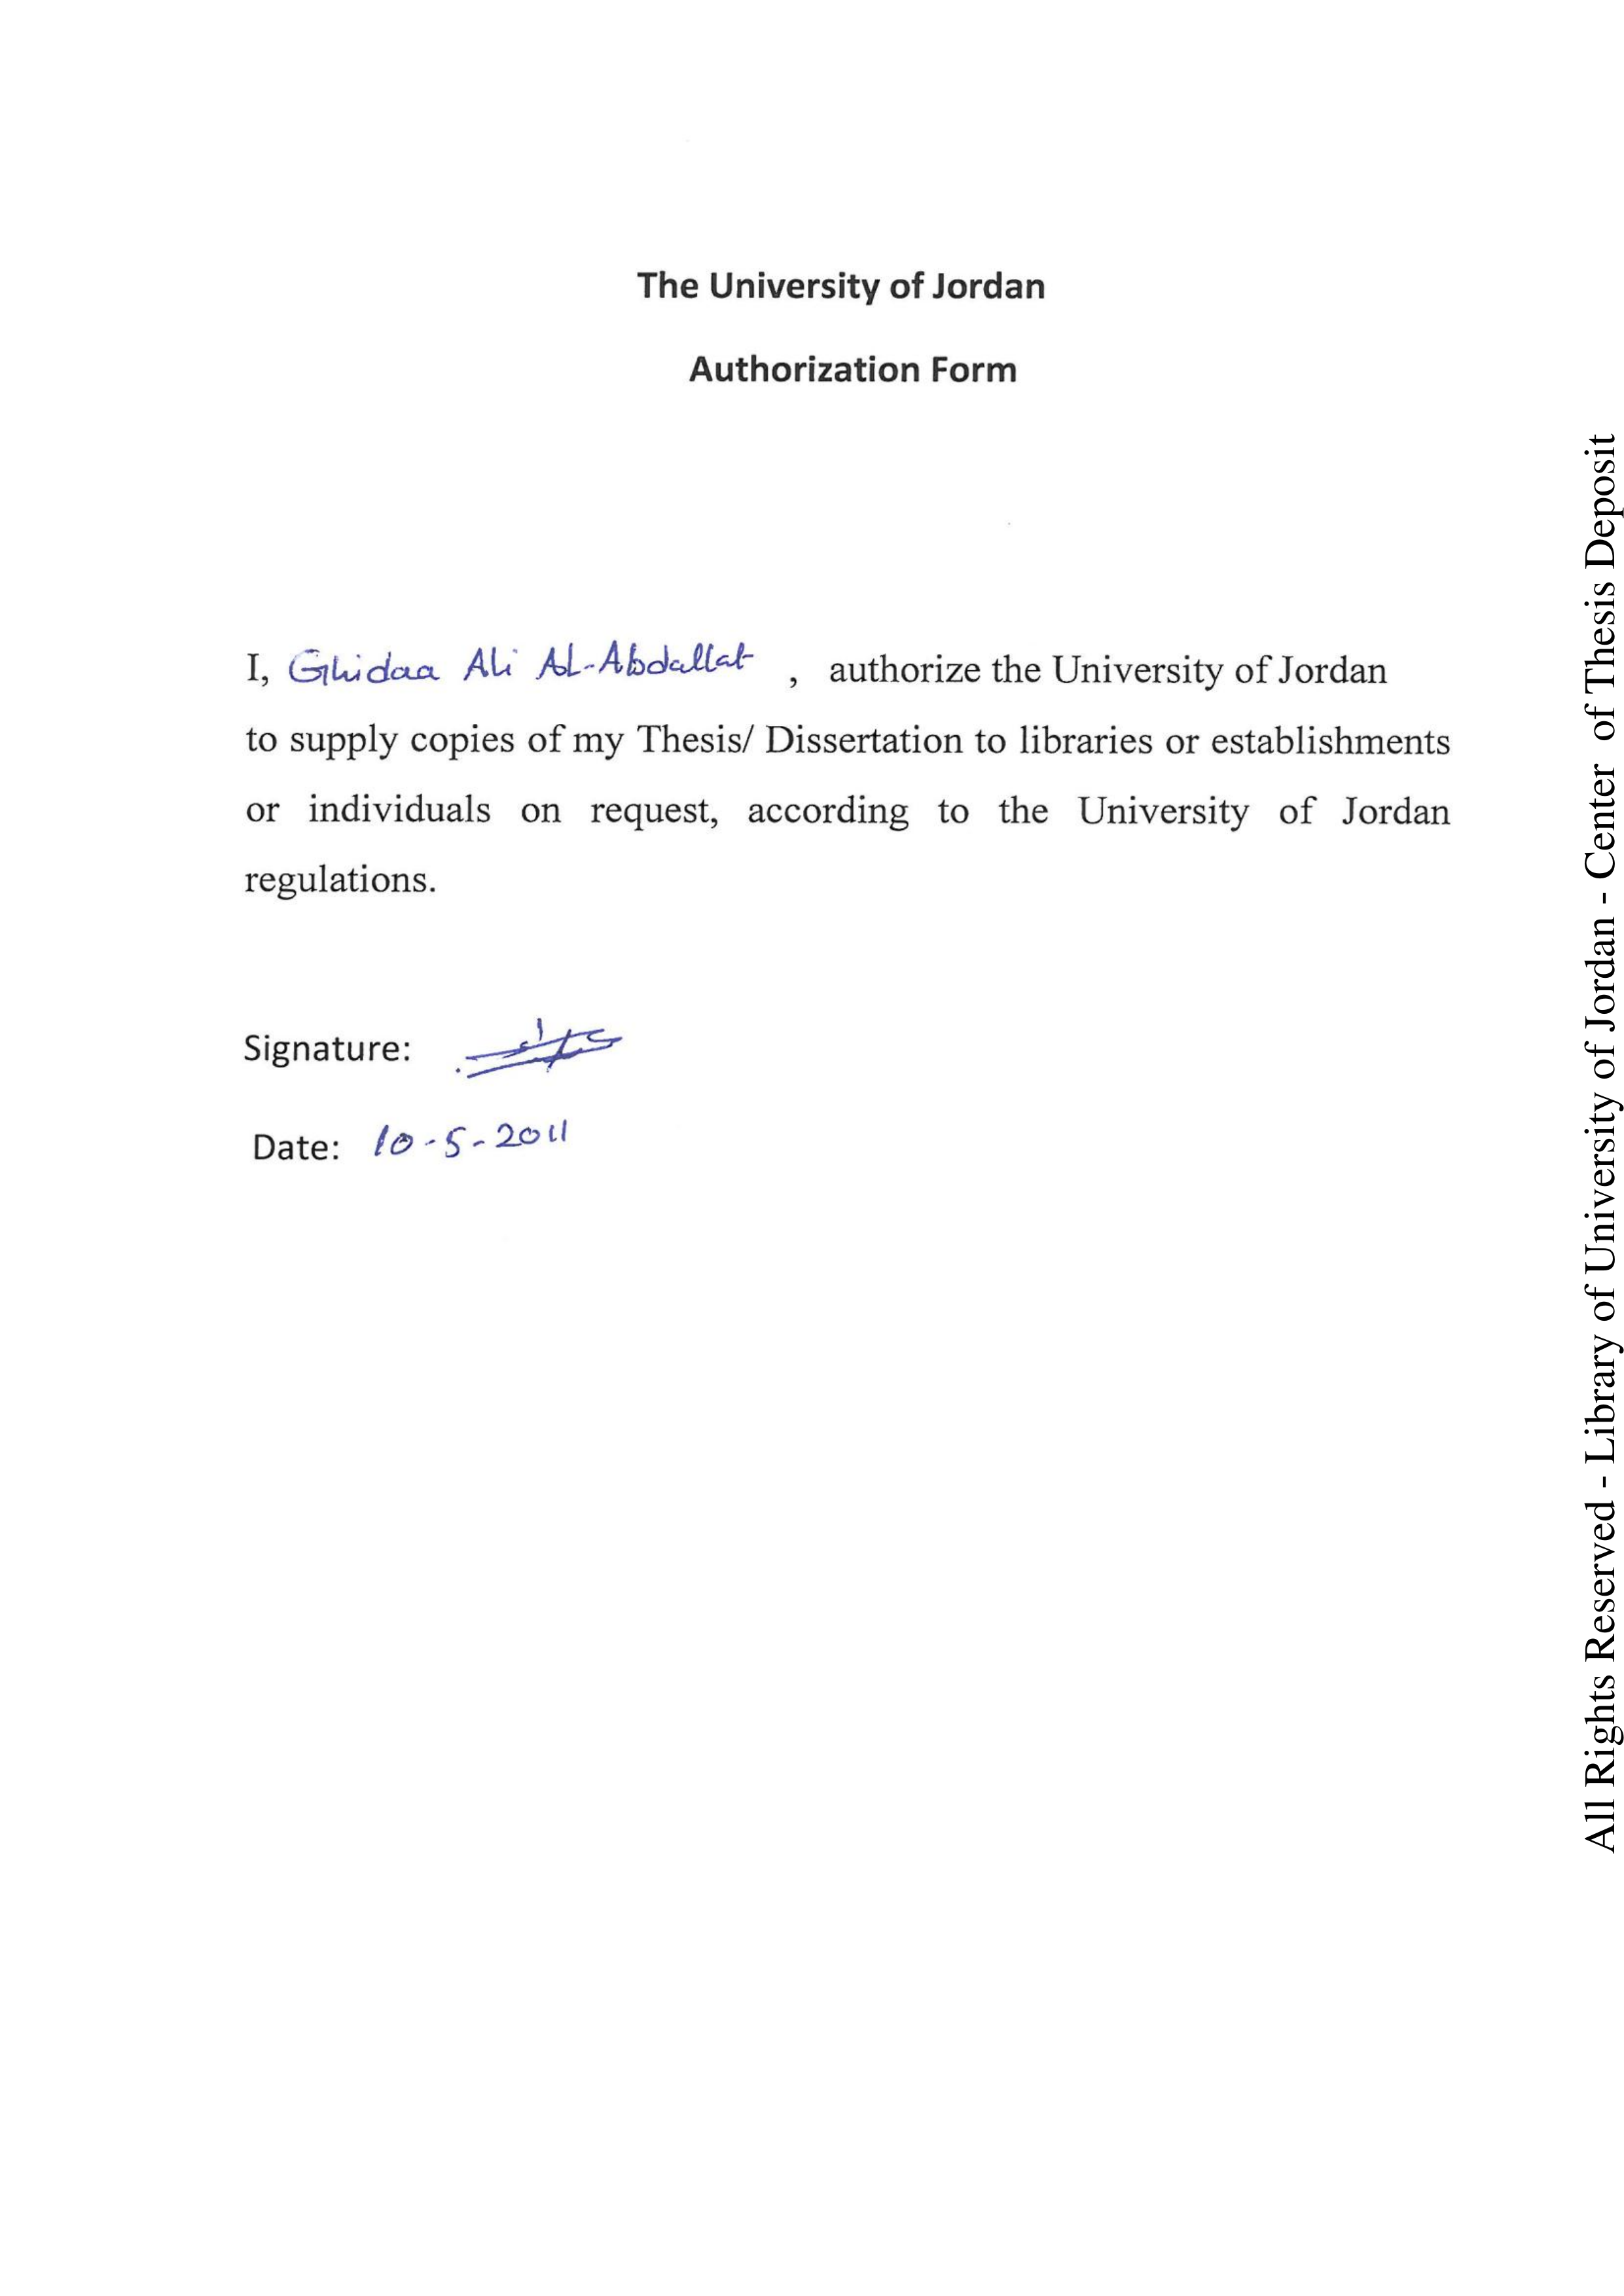 The University of Jordan
Authorization Form
I, Ghidaa Ali AL-Abdallat , authorize the University of Jordan
to supply copies of my Thesis/ Dissertation to libraries or establishments
or individuals on request, according to the University of Jordan
regulations.
Signature:
Date: 10-5-2011
All Rights Reserved - Library of University of Jordan - Center of Thesis Deposit